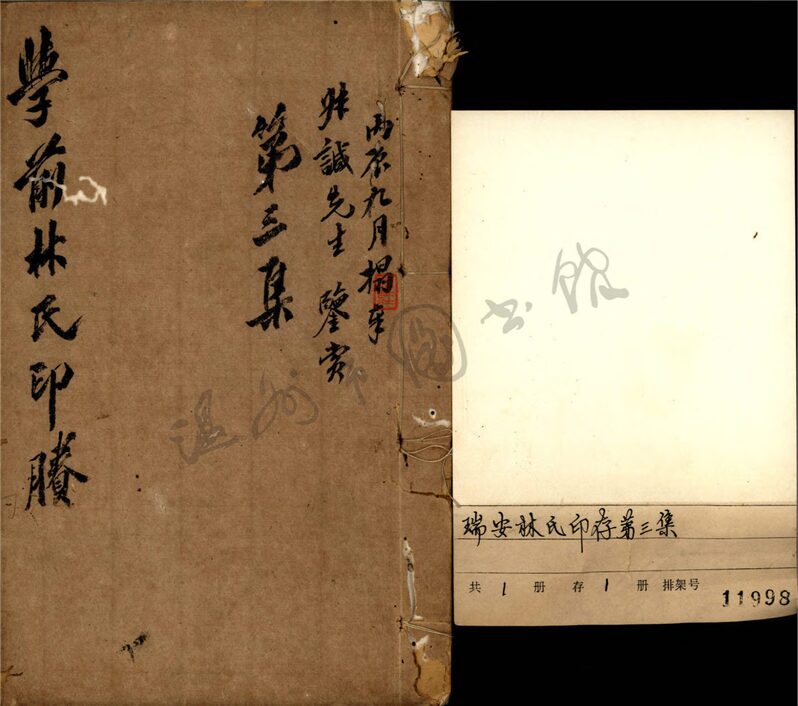 丙辰九月搨
誠先生鑒賞
第三集
學前林氏印賸
温州市圖书馆
瑞安林氏印存第三集
共 1 册 存 1 册 排架号
11998